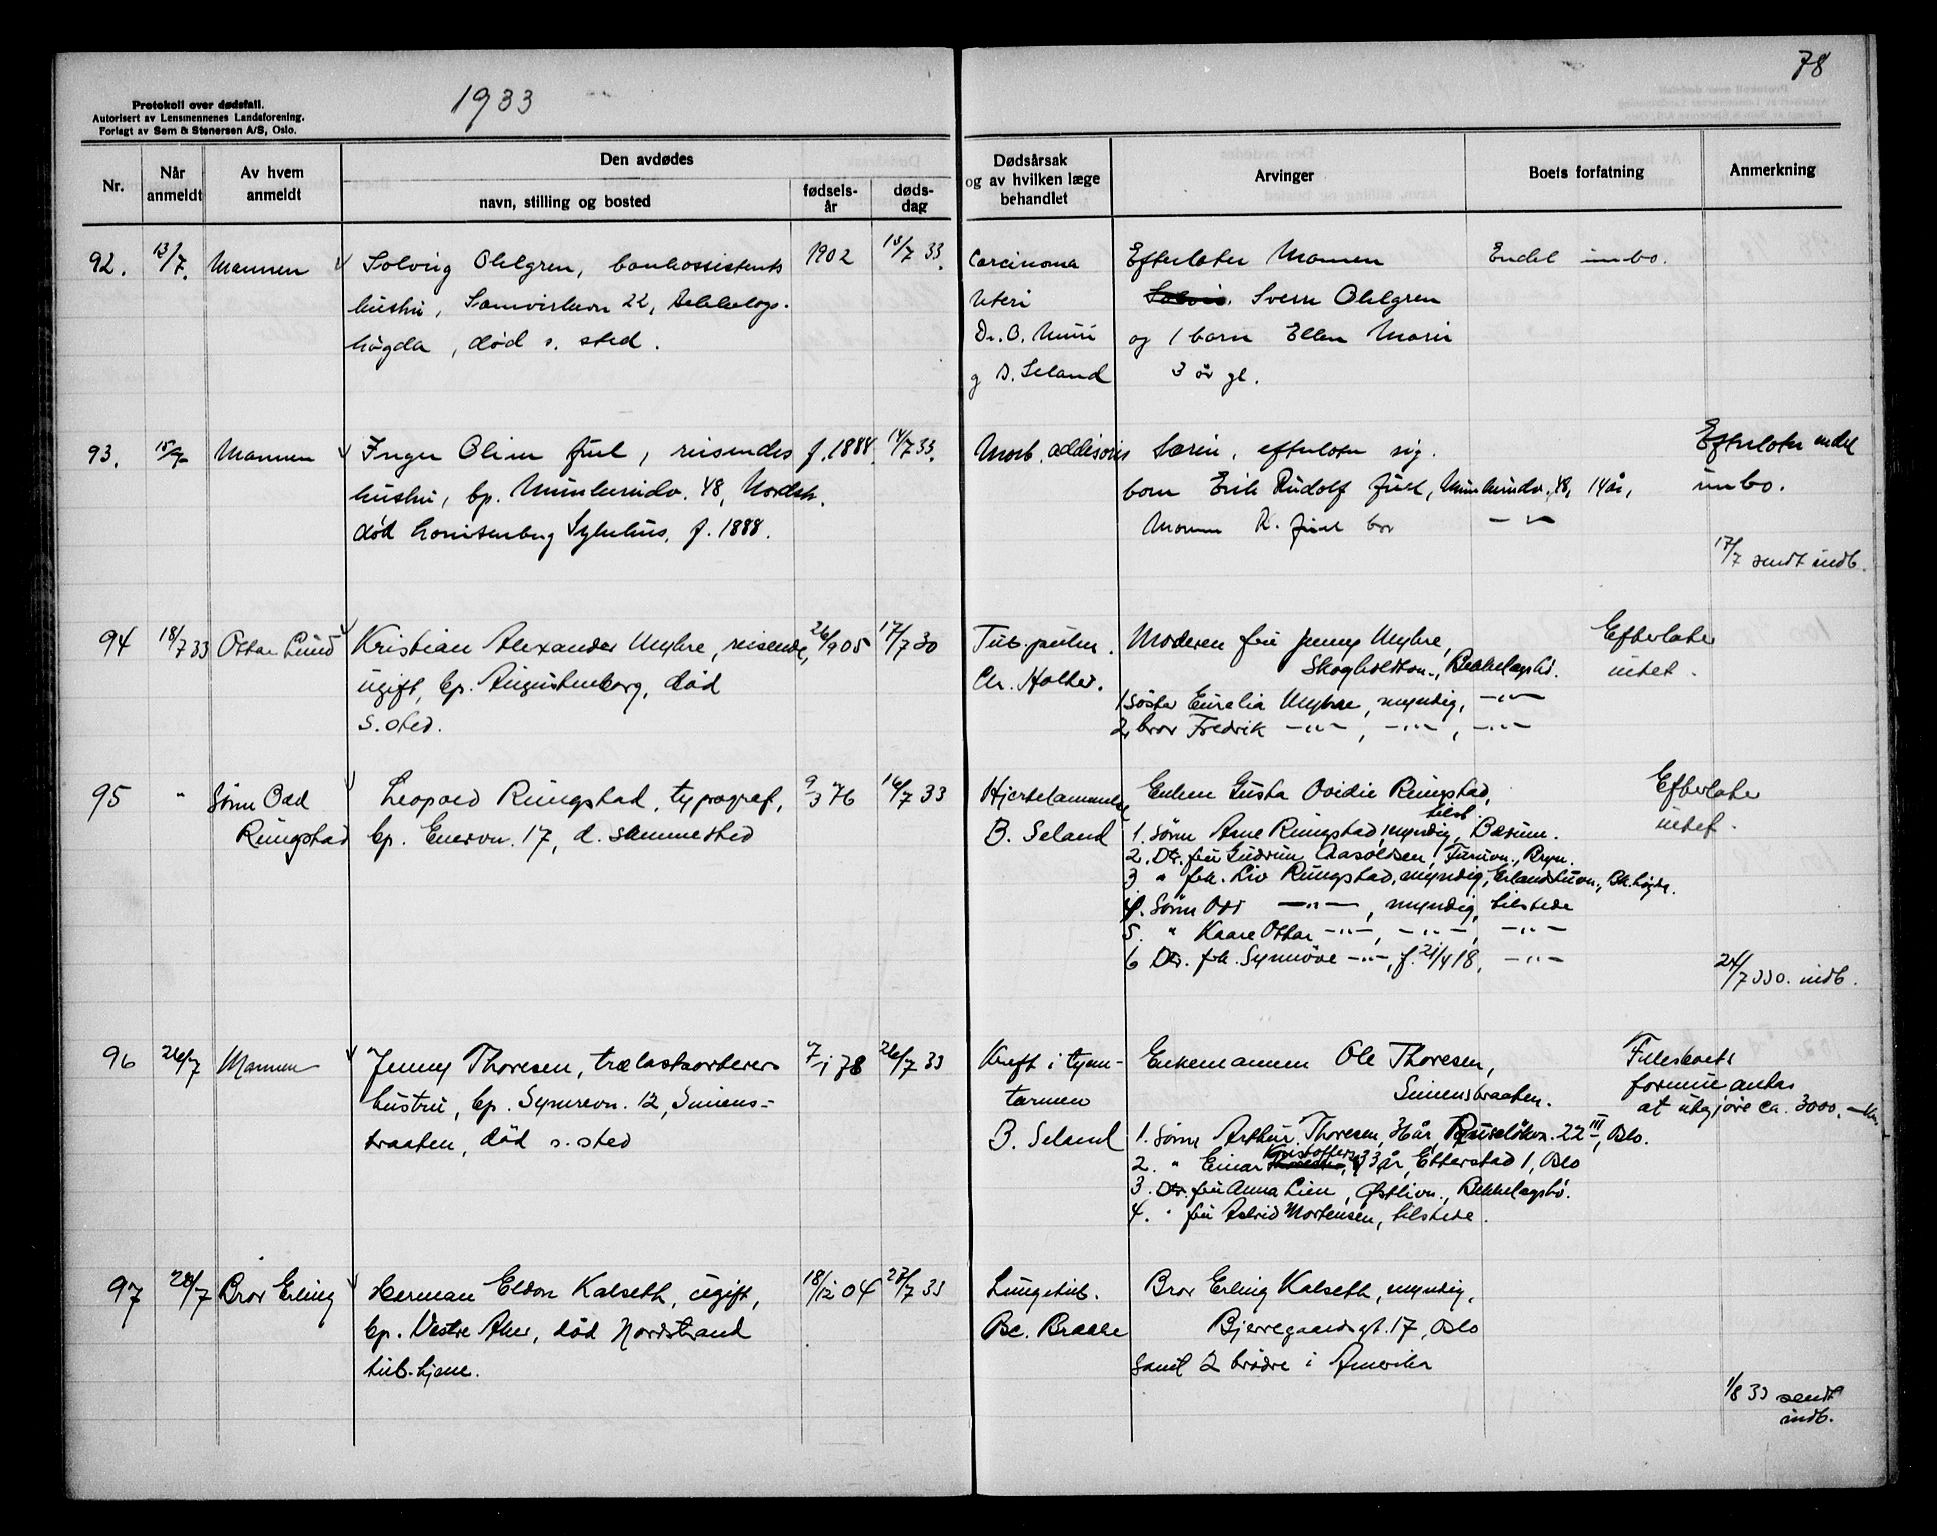 78
Protokoll over dødsfall.
Autorisert av Lensmennenes Landsforening.
Forlagt av Sem & Stenersen A/S, Oslo.
1933
Nr.
Når anmeldt
Av hvem anmeldt
Den avdødes
navn, stilling og bosted
fødsels-år
døds-dag
Dødsårsak og av hvilken læge behandlet
Arvinger
Boets forfatning
Anmerkning
92. 13/7. Mannen Solveig Ohlgren, bankassistents 1902 13/7 33.
hustru, Samvirkevn 22, Bekkelags-
høgda, død s. sted.
Carcinoma Efterlater Mannen Endel innbo.
Uteri Svern Ohlgren
Dr. O. og 1 barn Ellen Marie
og B. Seland 3 år gl.
93. 15/7 Mannen Inger Oline Juel, reisendes f. 1888. 14/7 33.
hustru, bp. Munkerudv. 48, Nordstr.
død Lovisenberg Sykehus, f. 1888.
Morb. addisonis Særeie, efterlater sig. Efterlater endel
barn Erik Rudolf Juel, Munkerudv. 48, 14 år, innbo.
Mannen R. Juel bor -"-
17/7 sendt indb.
94 18/7 33 Ottar Lund Kristian Alexander Myhre, reisende, 26/9 05 17/7 30
ugift, bp. Augustenborg, død
s. sted.
Tub. pulm. Moderen fru Jenny Myhre, Efterlater
Chr. Holter. Skogholdtvn., Bekkelagshd. intet.
1 søster Eurelia Myhre, myndig, -"-
2 bror Fredrik -"-, -"-, -"-
95 " Sønn Odd Leopold Ringstad, typograf, 9/3 76 16/7 33
Ringstad bp. Enervn. 17, d. sammested
Hjertelammelse Enken Gusta Ovidie Ringstad, tilst. Efterlater
B. Seland 1. Sønn Arne Ringstad, myndig, Bærum. intet.
2. Dtr. fru Gudrun Aasoldsen, Furuvn., Bryn.
3. " frk. Liv Ringstad, myndig, Erlandstuvn., Bk.høgda.
4. Sønn Odd -"-, myndig, tilstede
5. " Kaare Ottar -"-, -"-, -"-
6 Dtr. frk. Synnøve -"-, f. 21/4 18, -"-
24/7 33 o. indb.
96 26/7 Mannen Jenny Thoresen, trælastsorterers 7/1 78 26/7 33
hustru, bp. Symrevn. 12, Simens-
braaten, død s. sted
Kreft i tynn- Enkemannen Ole Thoresen, Fellesboets
tarmen Simensbraaten. formue antas
at utgjøre ca. 3000,- kr
B. Seland 1. Sønn Arthur Thoresen, 34 år, Ruseløkvn. 22 III, Oslo.
2. " Einar Kristoffersen, 33 år, Etterstad 1, Oslo
3. Dtr. fru Anna Lien, Østlivn., Bekkelagshø.
4. " fru Astrid Mortensen, tilstede.
97 28/7 Bror Erling Herman Eldon Kalseth, ugift, 18/12 04 27/7 33
bp. Vestre Aker, død Nordstrand
tub.hjem.
Lungetub. Bror Erling Kalseth, myndig,
Be. Braale Bjerregaardsgt. 17, Oslo
samt 2 brødre i Amerika
1/8 33 sendt
indb.